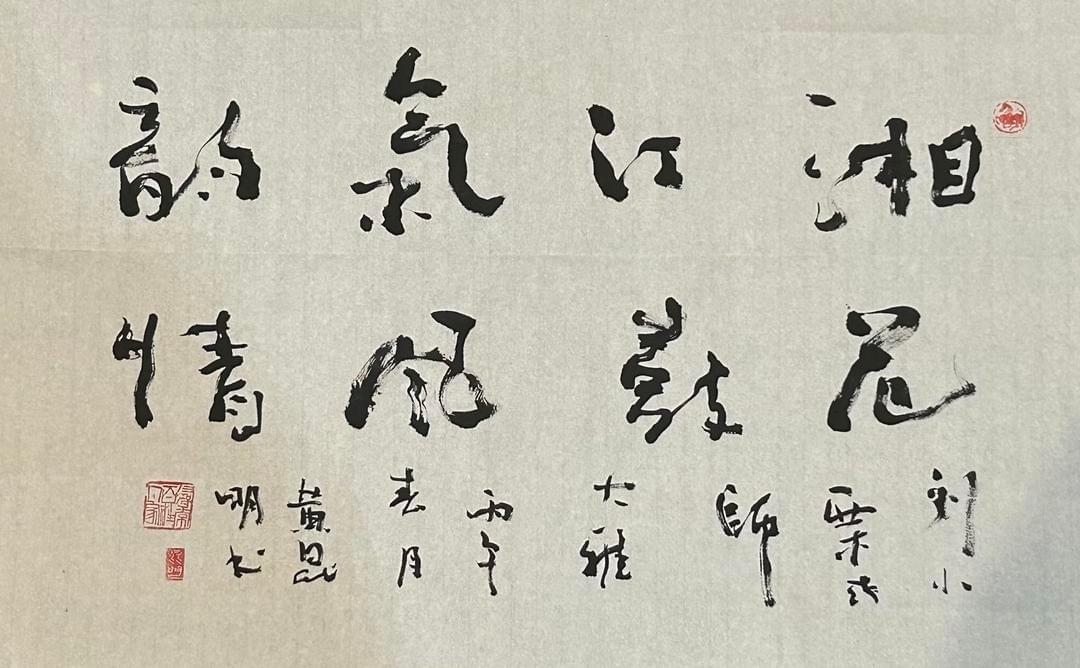 湘江氣韵
花鼓風情
刘小栗老師大雅
丙午春月
黄昆明书